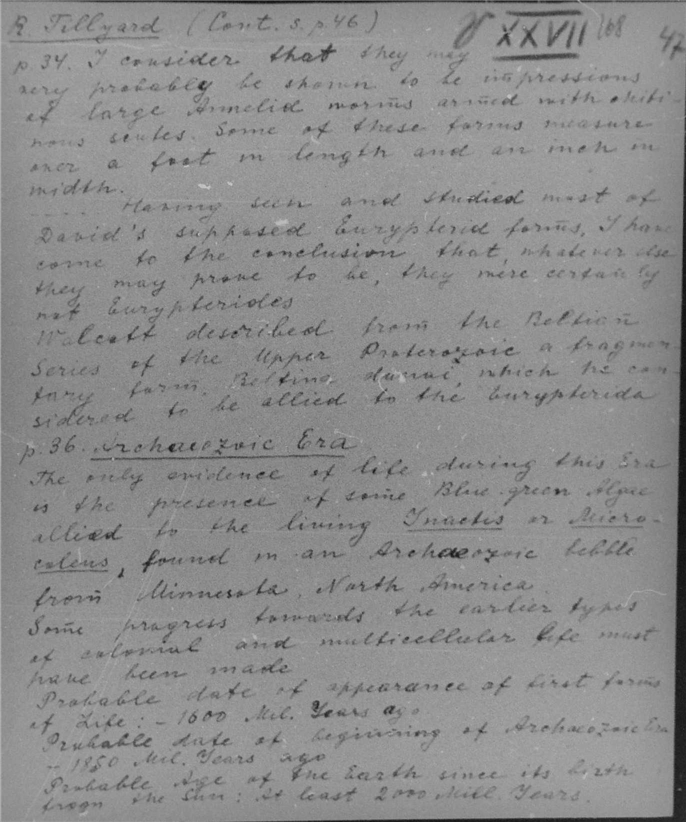 R. Tillyard (Cont. s. p.46) XXVII 168 47
p.34. I consider that they may
very probably be shown to be impressions
of large Annelid worms armed with chiti-
nous scutes. Some of these forms measure
over a foot in length and an inch in
width.
.... Having seen and studied most of
David's supposed Eurypterid forms, I have
come to the conclusion that, whatever else
they may prove to be, they were certainly
not Eurypterides
Walcott described from the Beltian
Series of the Upper Proterozoic a fragmen-
tary form, Beltina danai, which he con-
sidered to be allied to the Eurypterida
p.36. Archaeozoic Era
The only evidence of life during this Era
is the presence of some Blue-green Algae
allied to the living Inactis or Micro-
coleus, found in an Archaeozoic bebble
from Minnesota, North America.
Some progress towards the earlier types
of colonial and multicellular life must
have been made
Probable date of appearance of first forms
of Life: – 1600 Mil. Years ago
Probable date of beginning of Archaeozoic Era
– 1850 Mil. Years ago
Probable Age of the Earth since its birth
from the Sun: At least 2000 Mill. Years.